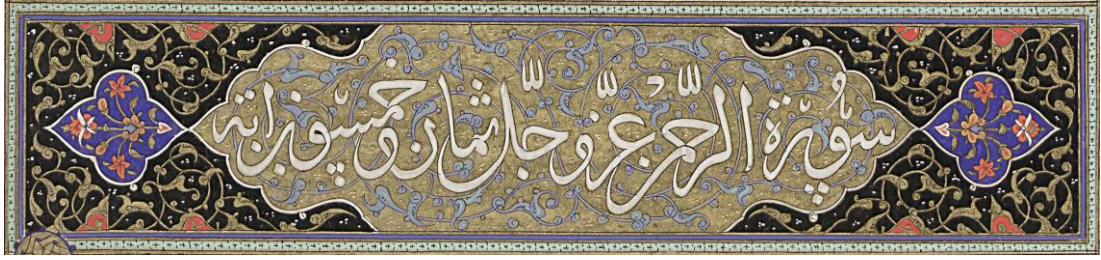 سورة الرحمن عز وجل ثمان وخمسون اية